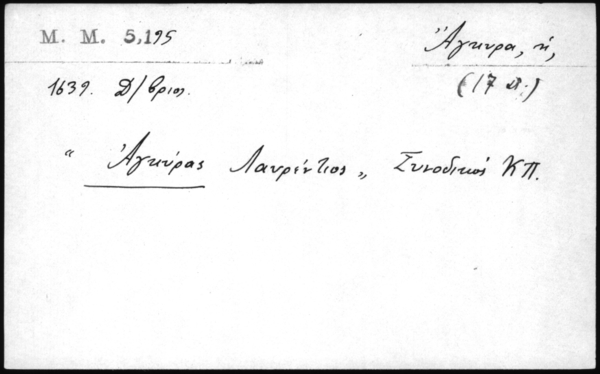 M. M. 5,195
Ἄγκυρα, ἡ,
1639. Δ/βριος.
(17 αἰ.)
" Ἀγκύρας Λαυρέντιος „ Συνοδικός ΚΠ.